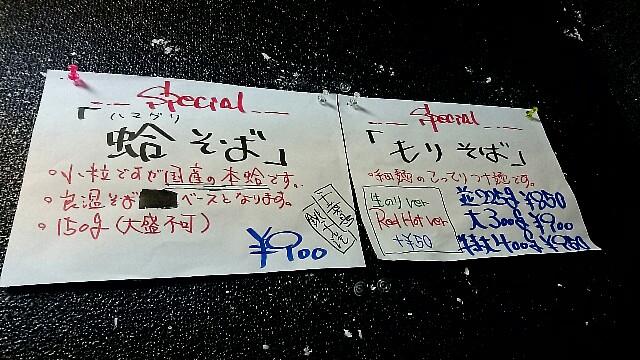 Special
ハマグリ
「蛤そば」
・小粒ですが国産の本蛤です。
・良温そばベースとなります。
・150g（大盛不可）
¥900
Special
「もりそば」
・和麺のこってりつけ麺です。
生のりver
Red Hot ver
+¥50
並225g ¥850
大300g ¥900
特大400g ¥950